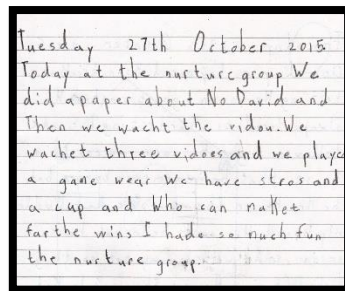 Tuesday 27th October 2015
Today at the nurture group We
did a paper about No David and
Then we wacht the vidou. We
wachet three vidoes and we playe
a game wear We have stros and
a cup and Who can maket
far the wins I hade so much fun
the nurture group.